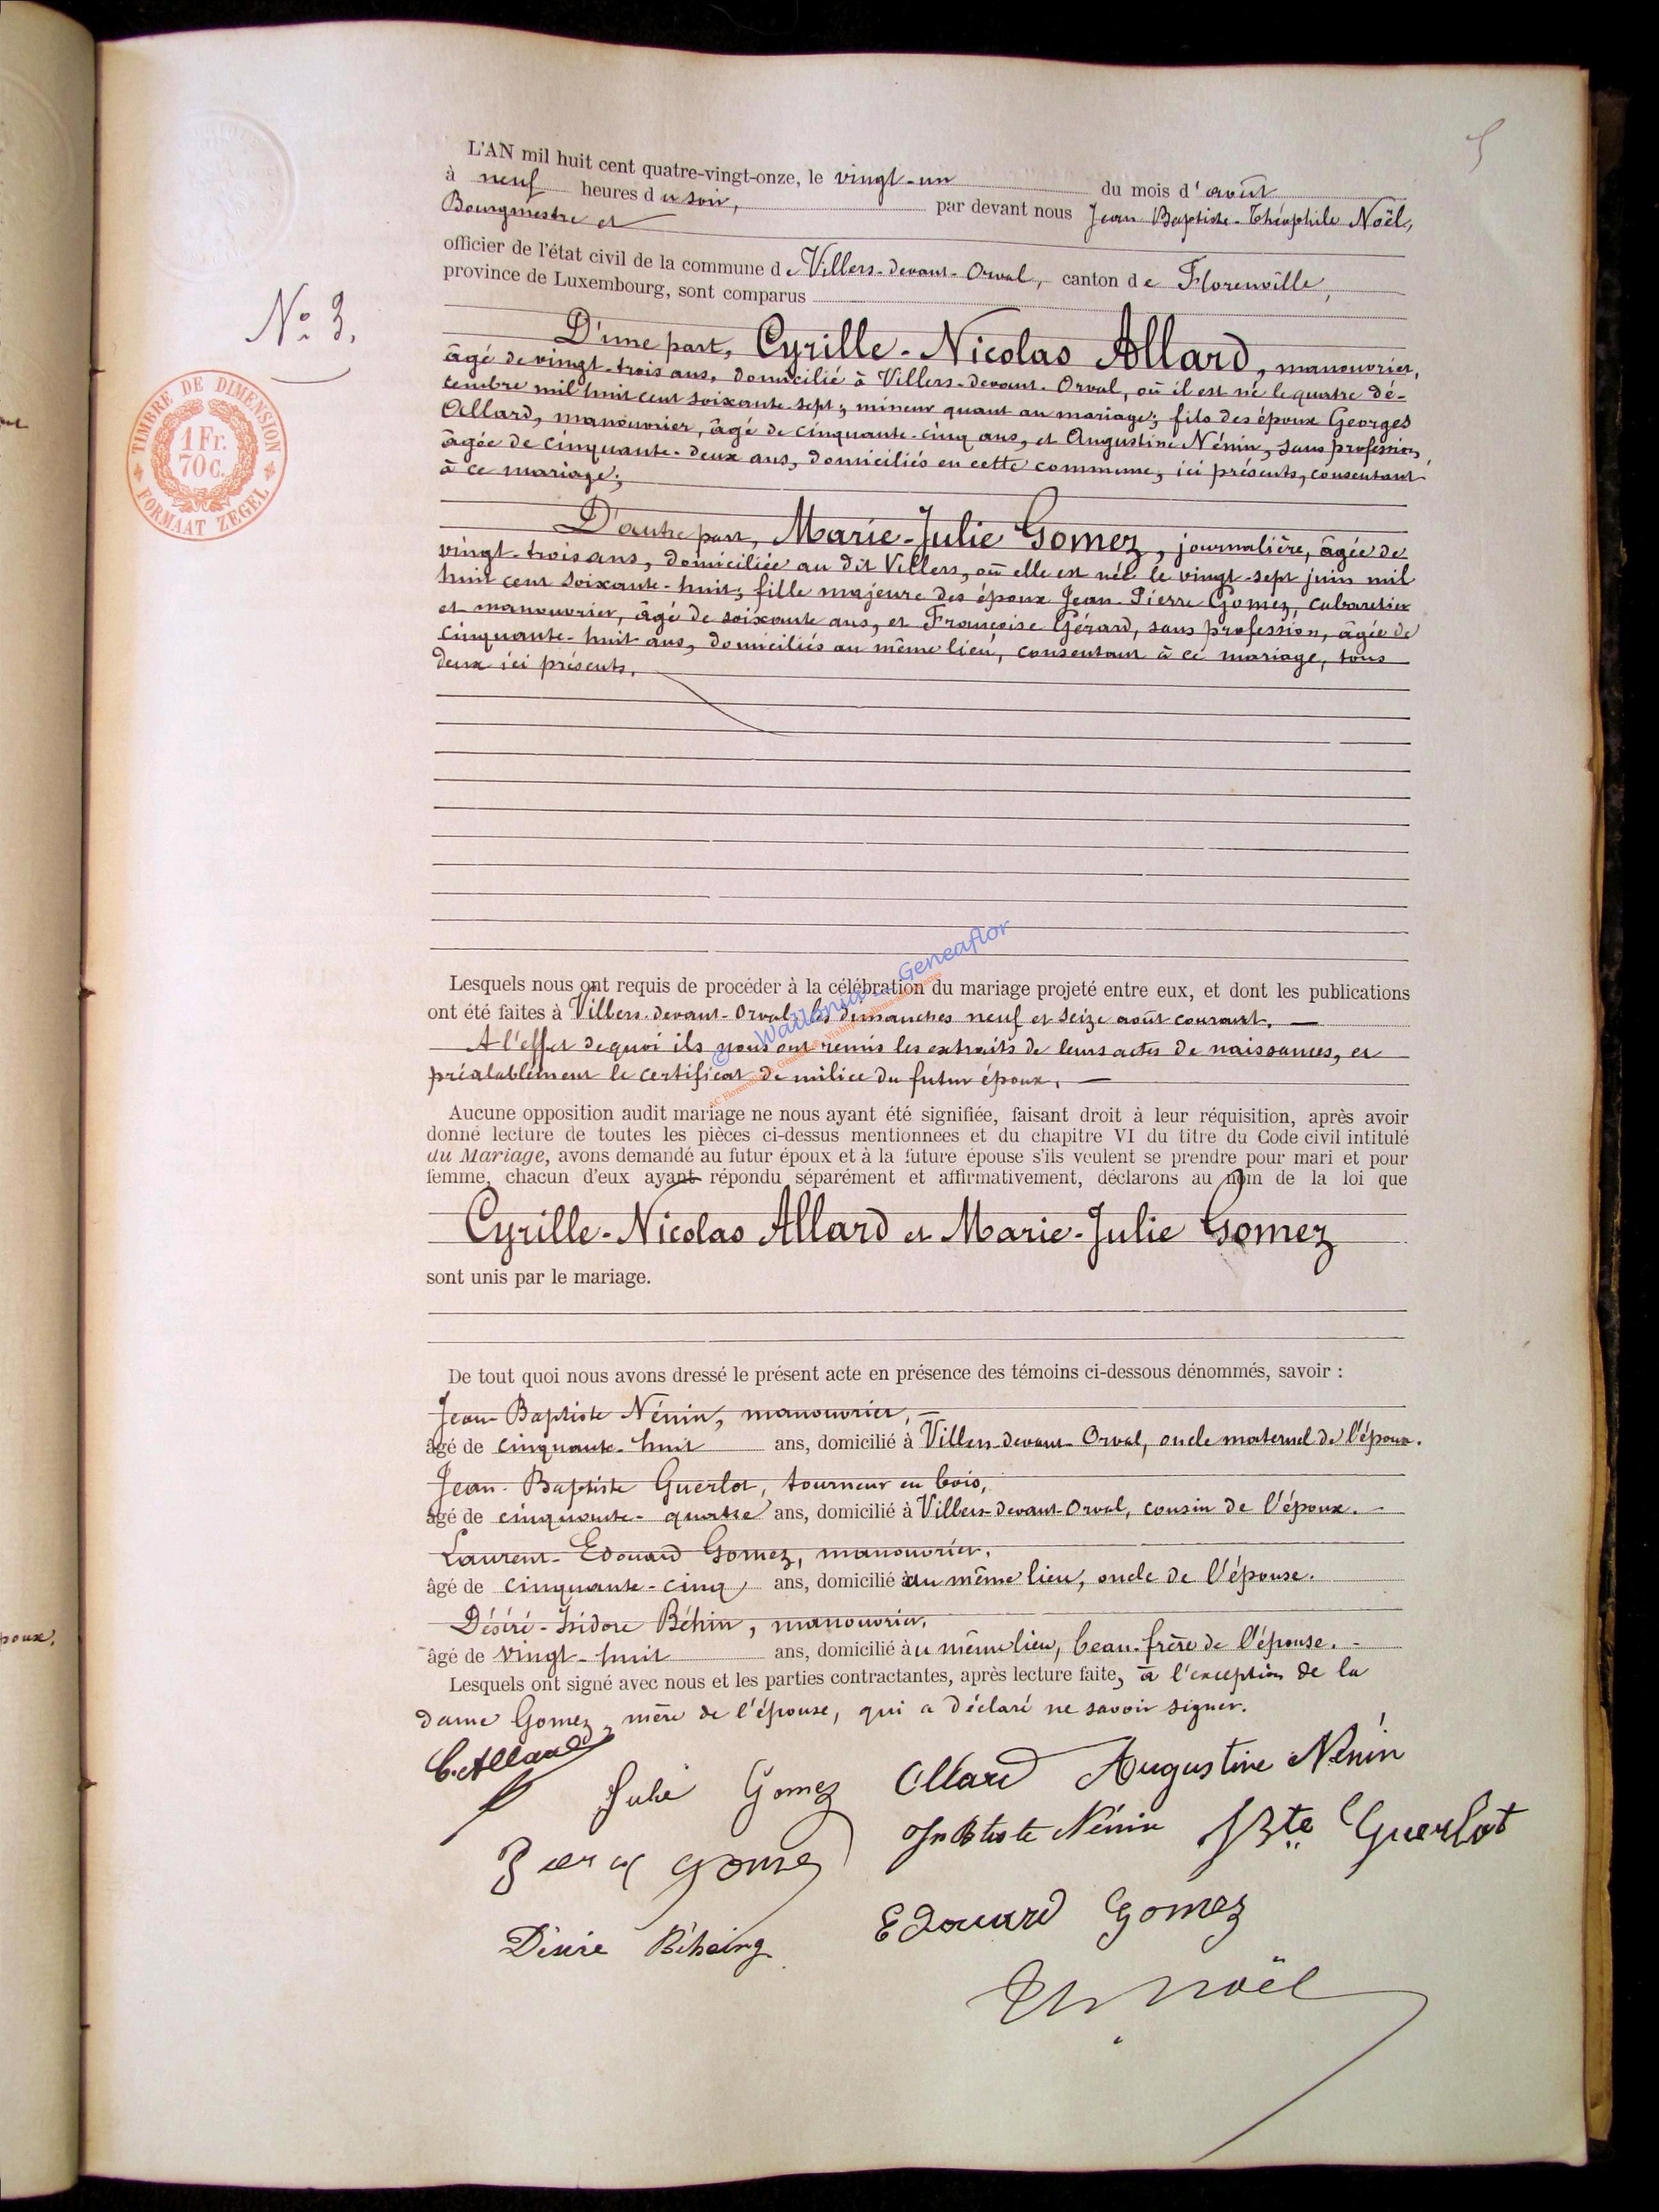 5
L'AN mil huit cent quatre-vingt-onze, le vingt-un du mois d'août
à neuf heures du soir, par devant nous Jean Baptiste-Théophile Noël,
Bourgmestre et
officier de l'état civil de la commune de Villers-devant-Orval, canton de Florenville,
province de Luxembourg, sont comparus
N° 3.
D'une part, Cyrille-Nicolas Allard, manouvrier,
âgé de vingt-trois ans, domicilié à Villers-devant-Orval, où il est né le quatre dé-
cembre mil huit cent soixante-sept; mineur quant au mariage; fils des époux Georges
Allard, manouvrier, âgé de cinquante-cinq ans, et Augustine Nénin, sans profession,
âgée de cinquante-deux ans, domiciliés en cette commune, ici présents, consentant
à ce mariage;
TIMBRE DE DIMENSION
1 Fr.
70 c.
FORMAAT ZEGEL
D'autre part, Marie-Julie Gomez, journalière, âgée de
vingt-trois ans, domiciliée au dit Villers, où elle est née le vingt-sept juin mil
huit cent soixante-huit; fille majeure des époux Jean-Pierre Gomez, cabaretier
et manouvrier, âgé de soixante ans, et Françoise Gérard, sans profession, âgée de
cinquante-huit ans, domiciliés au même lieu, consentant à ce mariage, tous
deux ici présents.
Lesquels nous ont requis de procéder à la célébration du mariage projeté entre eux, et dont les publications
ont été faites à Villers-devant-Orval les dimanches neuf et seize août courant.
A l'effet de quoi ils nous ont remis les extraits de leurs actes de naissances, et
préalablement le certificat de milice du futur époux.
© Wallonia Geneaflor
Aucune opposition audit mariage ne nous ayant été signifiée, faisant droit à leur réquisition, après avoir
donné lecture de toutes les pièces ci-dessus mentionnees et du chapitre VI du titre du Code civil intitulé
du Mariage, avons demandé au futur époux et à la future épouse s'ils veulent se prendre pour mari et pour
femme, chacun d'eux ayant répondu séparément et affirmativement, déclarons au nom de la loi que
Cyrille-Nicolas Allard et Marie-Julie Gomez
sont unis par le mariage.
De tout quoi nous avons dressé le présent acte en présence des témoins ci-dessous dénommés, savoir :
Jean-Baptiste Nénin, manouvrier,
âgé de cinquante-huit ans, domicilié à Villers-devant-Orval, oncle maternel de l'époux.
Jean-Baptiste Guerlot, tourneur en bois,
âgé de cinquante-quatre ans, domicilié à Villers-devant-Orval, cousin de l'époux.
Laurent-Edouard Gomez, manouvrier,
âgé de cinquante-cinq ans, domicilié au même lieu, oncle de l'épouse.
Désiré-Isidore Béhin, manouvrier,
poux.
âgé de vingt-huit ans, domicilié au même lieu, beau-frère de l'épouse.
Lesquels ont signé avec nous et les parties contractantes, après lecture faite, à l'exception de la
dame Gomez, mère de l'épouse, qui a déclaré ne savoir signer.
C. Allard
Julie Gomez Allard Augustine Nénin
Jn Btiste Nénin JBte Guerlot
Gomez
Edouard Gomez
Désiré Béheing
Th Noël